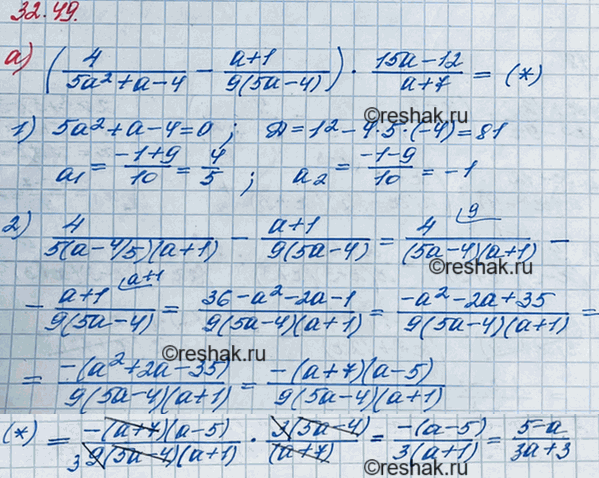 32.49.
а) (4/(5a²+a-4) - (a+1)/(9(5a-4))) · (15a-12)/(a+7) = (*)
©reshak.ru
1) 5a²+a-4=0 ; Д=1²-4·5·(-4)=81
a₁ = (-1+9)/10 = 4/5 ; a₂ = (-1-9)/10 = -1
2) 4/(5(a-4/5)(a+1)) - (a+1)/(9(5a-4)) = 4 ⁹/((5a-4)(a+1)) -
©reshak.ru
- (a+1) ᵃ⁺¹/(9(5a-4)) = (36-a²-2a-1)/(9(5a-4)(a+1)) = (-a²-2a+35)/(9(5a-4)(a+1)) =
©reshak.ru
= (-(a²+2a-35))/(9(5a-4)(a+1)) = (-(a+7)(a-5))/(9(5a-4)(a+1))
(*) = (-(a+7)(a-5))/(₃9(5a-4)(a+1)) · (3(5a-4))/((a+7)) = (-(a-5))/(3(a+1)) = (5-a)/(3a+3)
©reshak.ru